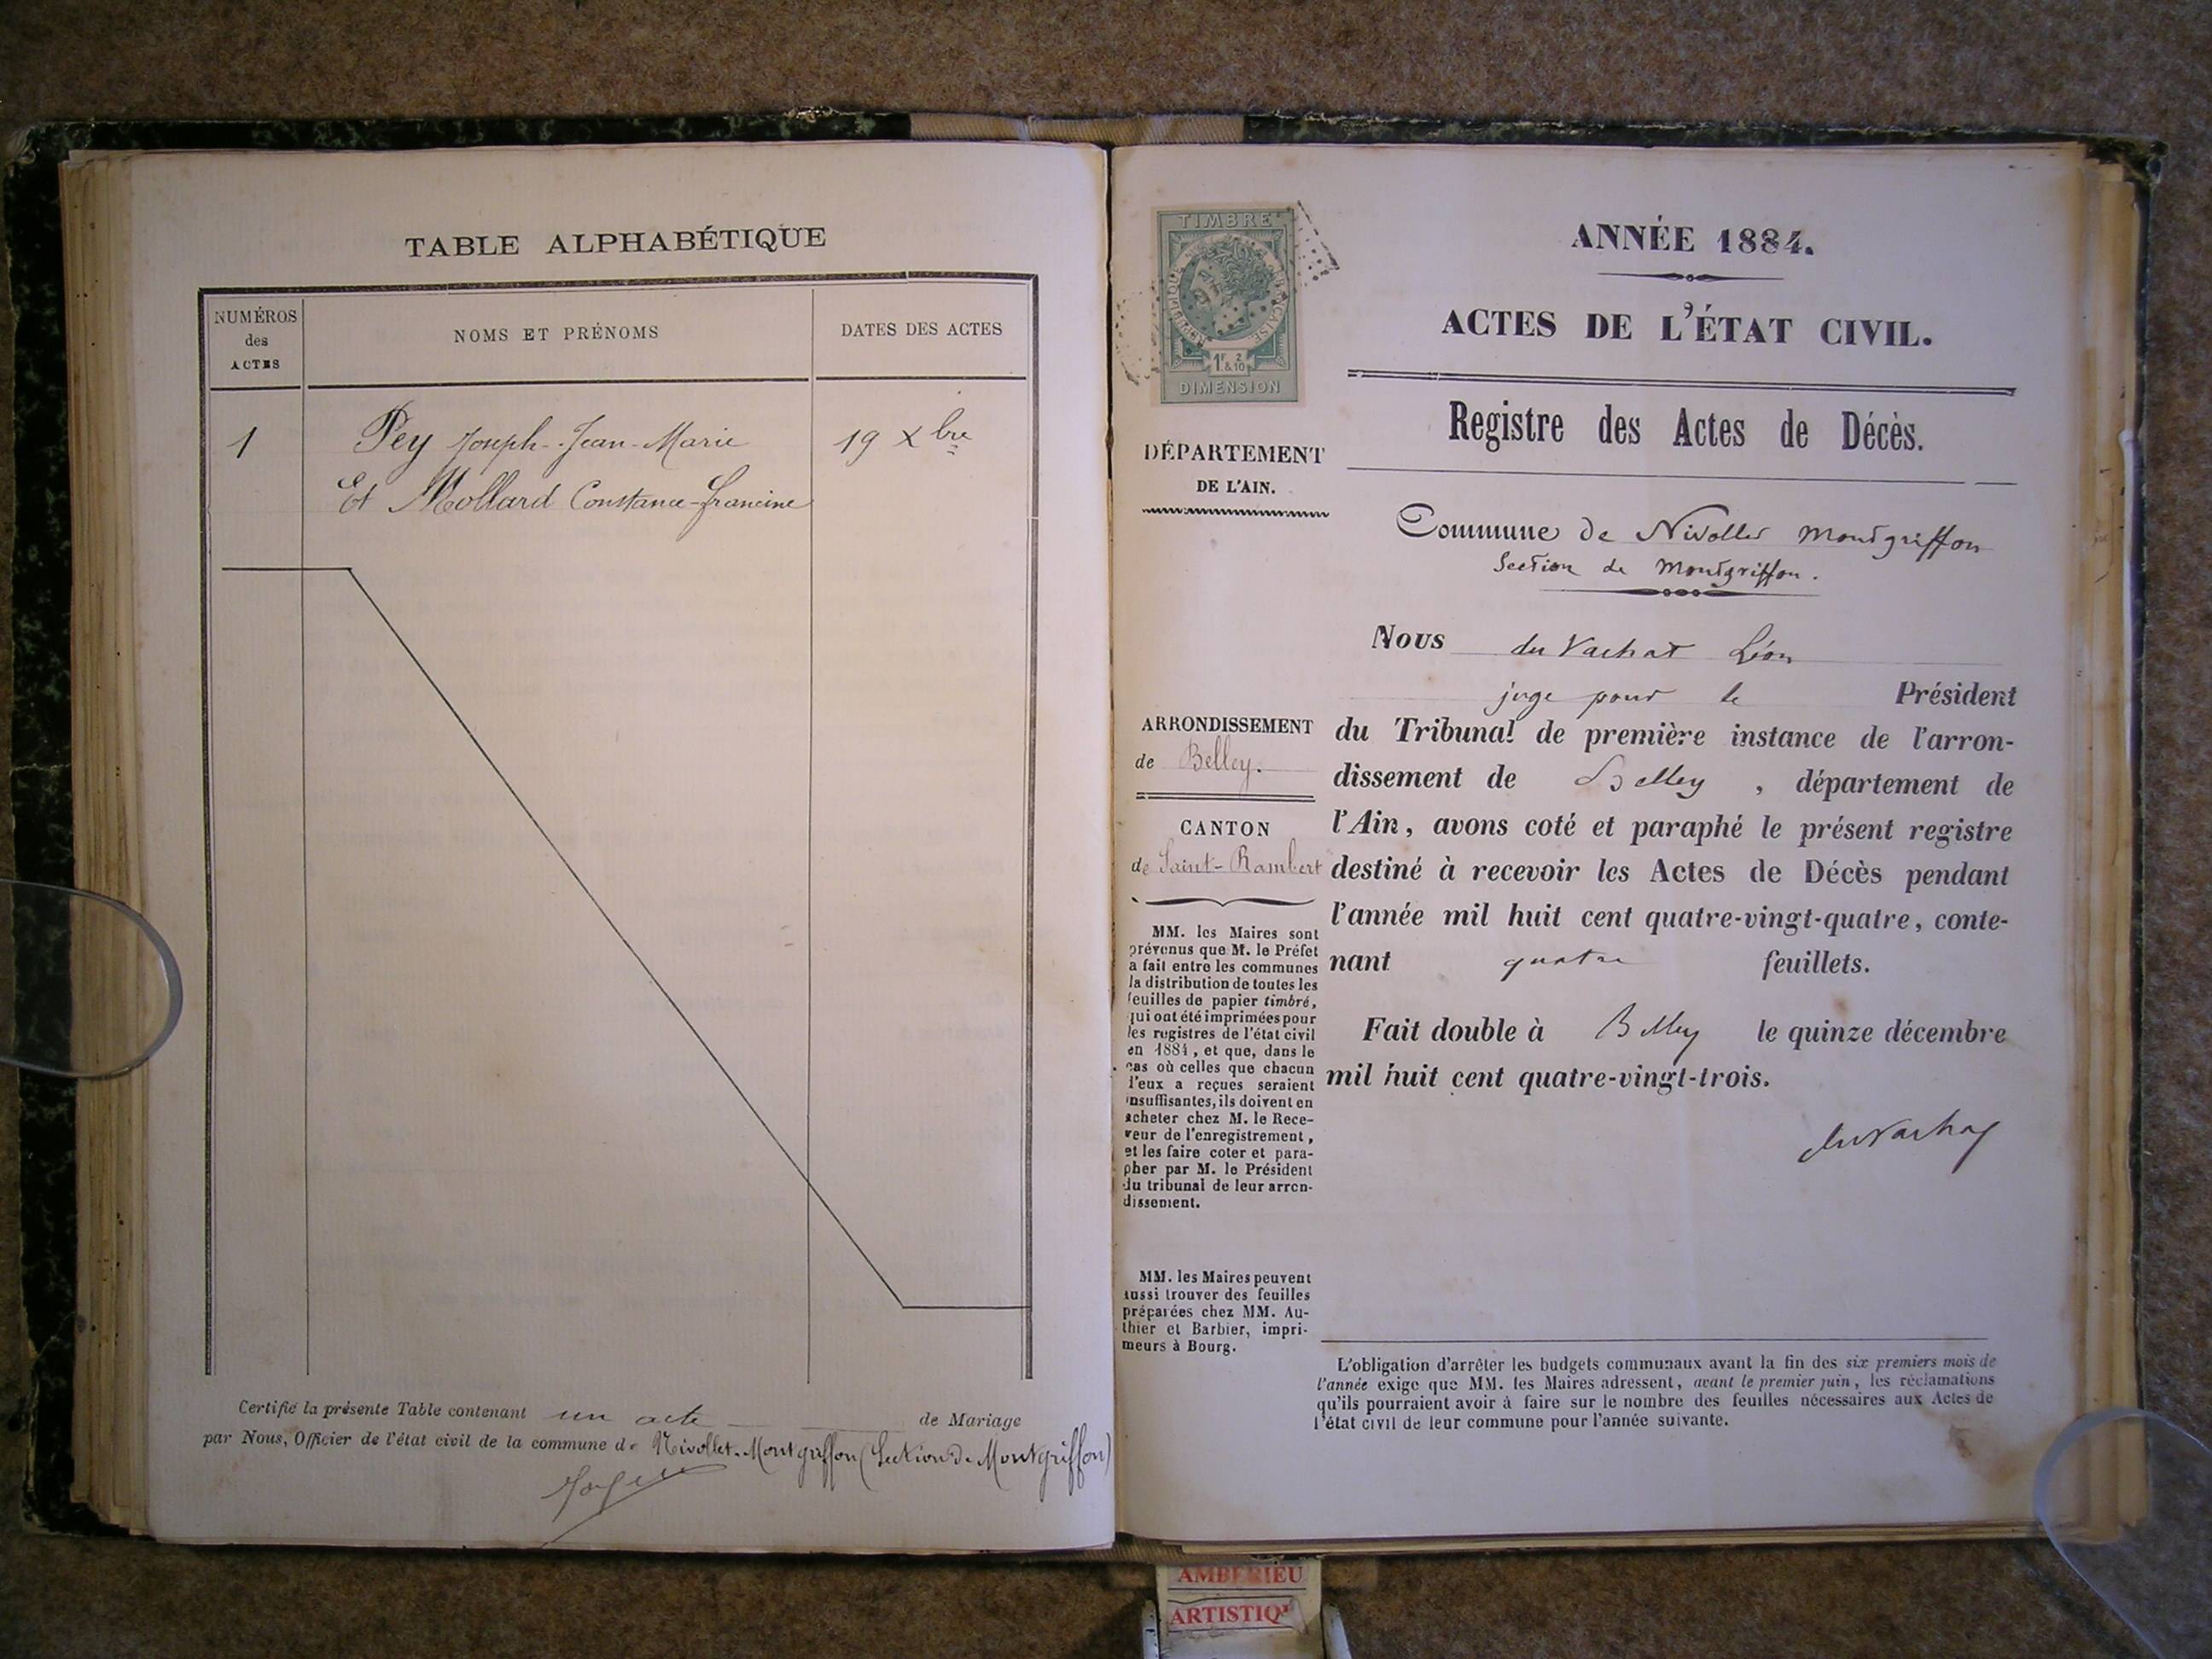 TABLE ALPHABÉTIQUE
NUMÉROS
des
ACTES
NOMS ET PRÉNOMS
DATES DES ACTES
1
Pey Joseph-Jean-Marie
19 Xbre
Et Mollard Constance-francine
Certifié la présente Table contenant un acte de Mariage
par Nous, Officier de l'état civil de la commune de Nivollet-Montgriffon (Section de Montgriffon)
TIMBRE
RÉPUBLIQUE FRANÇAISE
1F 2/10
&
DIMENSION
DÉPARTEMENT
DE L'AIN.
ARRONDISSEMENT
de Belley.
CANTON
de Saint-Rambert
MM. les Maires sont
prévenus que M. le Préfet
a fait entre les communes
la distribution de toutes les
feuilles de papier timbré,
qui ont été imprimées pour
les registres de l'état civil
en 1884, et que, dans le
cas où celles que chacun
d'eux a reçues seraient
insuffisantes, ils doivent en
acheter chez M. le Rece-
veur de l'enregistrement,
et les faire coter et para-
pher par M. le Président
du tribunal de leur arron-
dissement.
MM. les Maires peuvent
aussi trouver des feuilles
préparées chez MM. Au-
thier et Barbier, impri-
meurs à Bourg.
ANNÉE 1884.
ACTES DE L'ÉTAT CIVIL.
Registre des Actes de Décès.
Commune de Nivollet Montgriffon
Section de Montgriffon.
Nous du Vachat Léon
juge pour le Président
du Tribunal de première instance de l'arron-
dissement de Belley, département de
l'Ain, avons coté et paraphé le présent registre
destiné à recevoir les Actes de Décès pendant
l'année mil huit cent quatre-vingt-quatre, conte-
nant quatre feuillets.
Fait double à Belley le quinze décembre
mil huit cent quatre-vingt-trois.
du Vachat
L'obligation d'arrêter les budgets communaux avant la fin des six premiers mois de
l'année exige que MM. les Maires adressent, avant le premier juin, les réclamations
qu'ils pourraient avoir à faire sur le nombre des feuilles nécessaires aux Actes de
l'état civil de leur commune pour l'année suivante.
AMBERIEU
ARTISTIQ